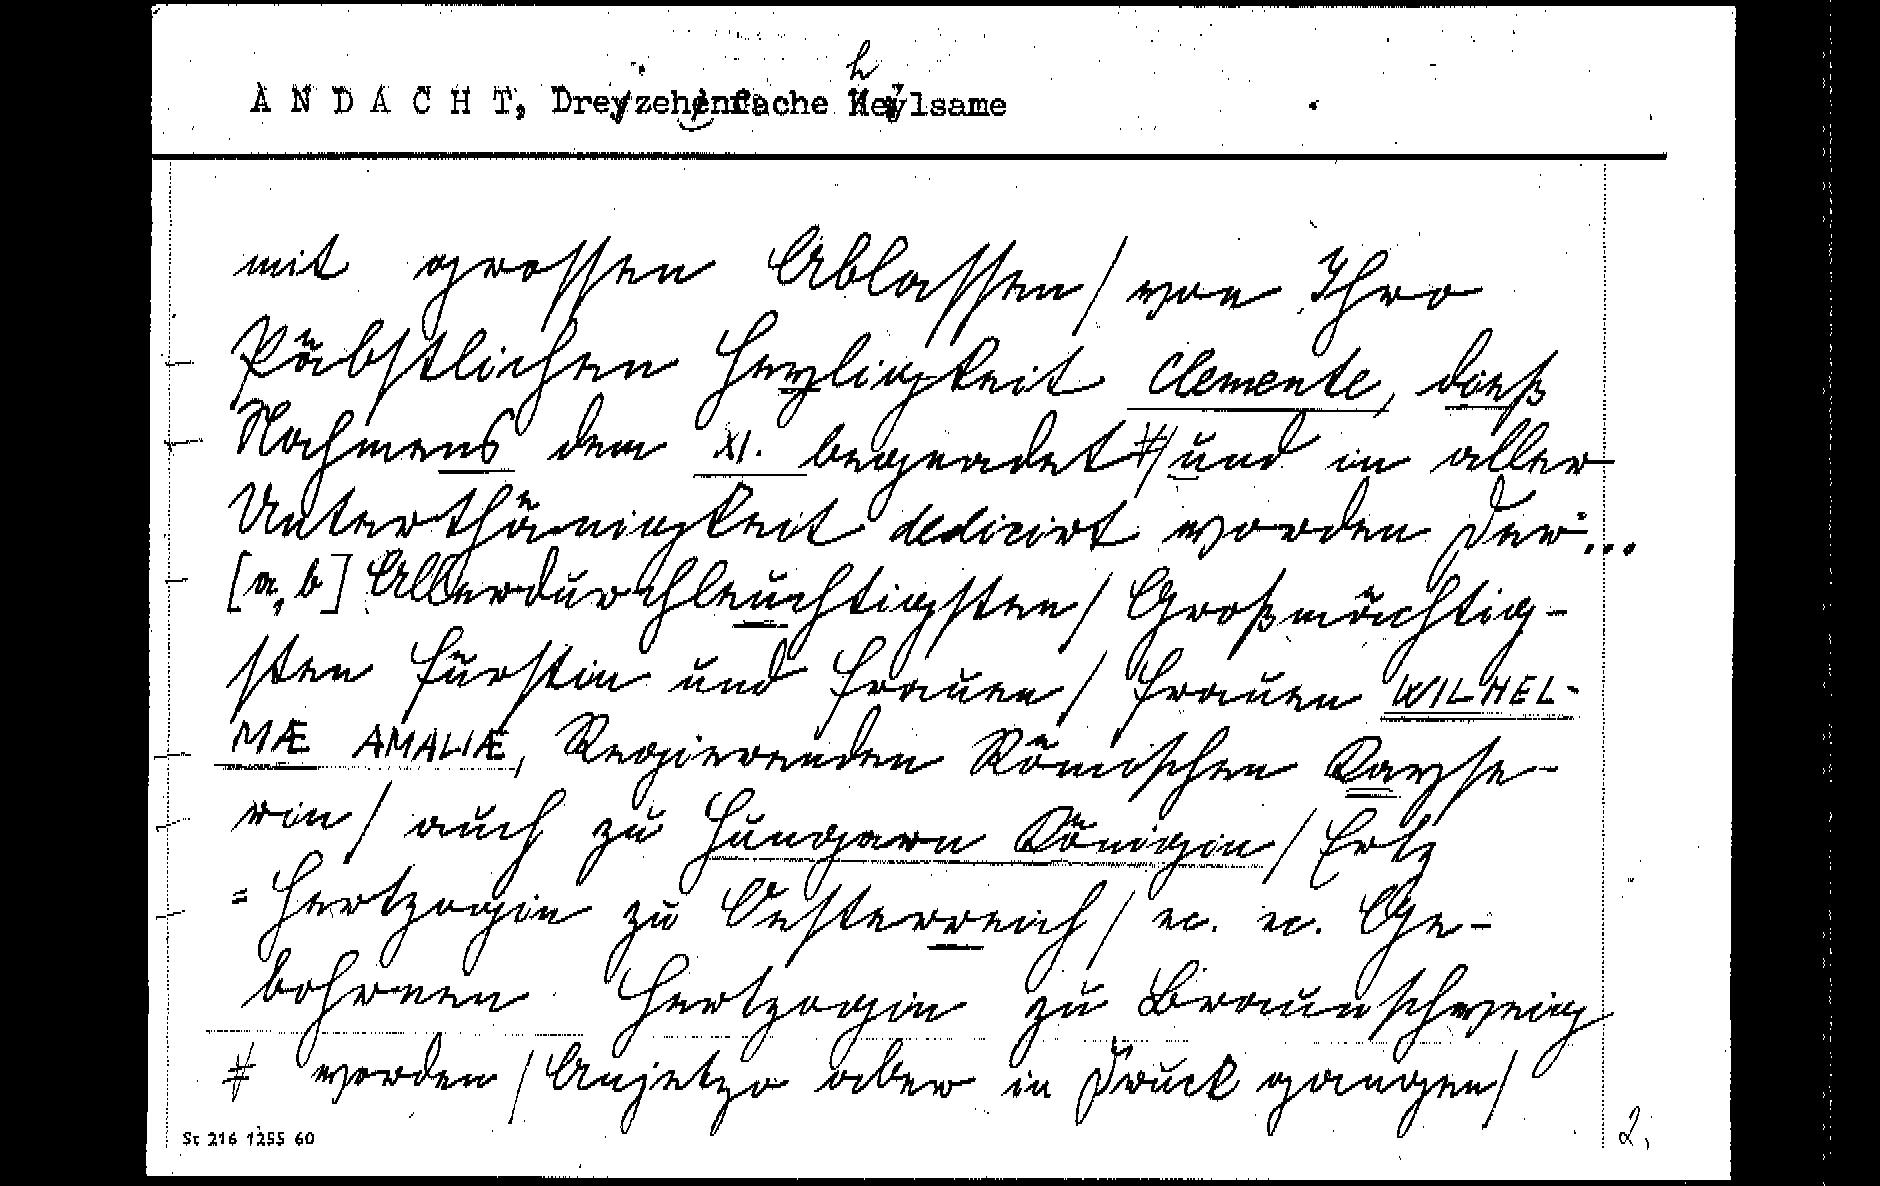 h
A N D A C H T, Dreyzehenfache Heylsame
mit grossen Ablassen / von Ihro
Päbstlichen Heyligkeit Clemente, daeß
Nahmens dem XI. begnadet #/ und in aller
Unterthänigkeit dedicirt worden Der ...
[a, b] Allerdurchleuchtigsten / Großmächtig-
sten Fürstin und Frauen / Frauen WILHEL-
MÆ AMALIÆ, Regierenden Römischen Kayse-
rin / auch zu Hungarn Königin / Ertz
= Hertzogin zu Oesterreich / ec. ec. Ge-
bohrnen Hertzogin zu Braunschweig
# worden / Anjetzo aber in Druck gangen /
St 216 1255 60
2.